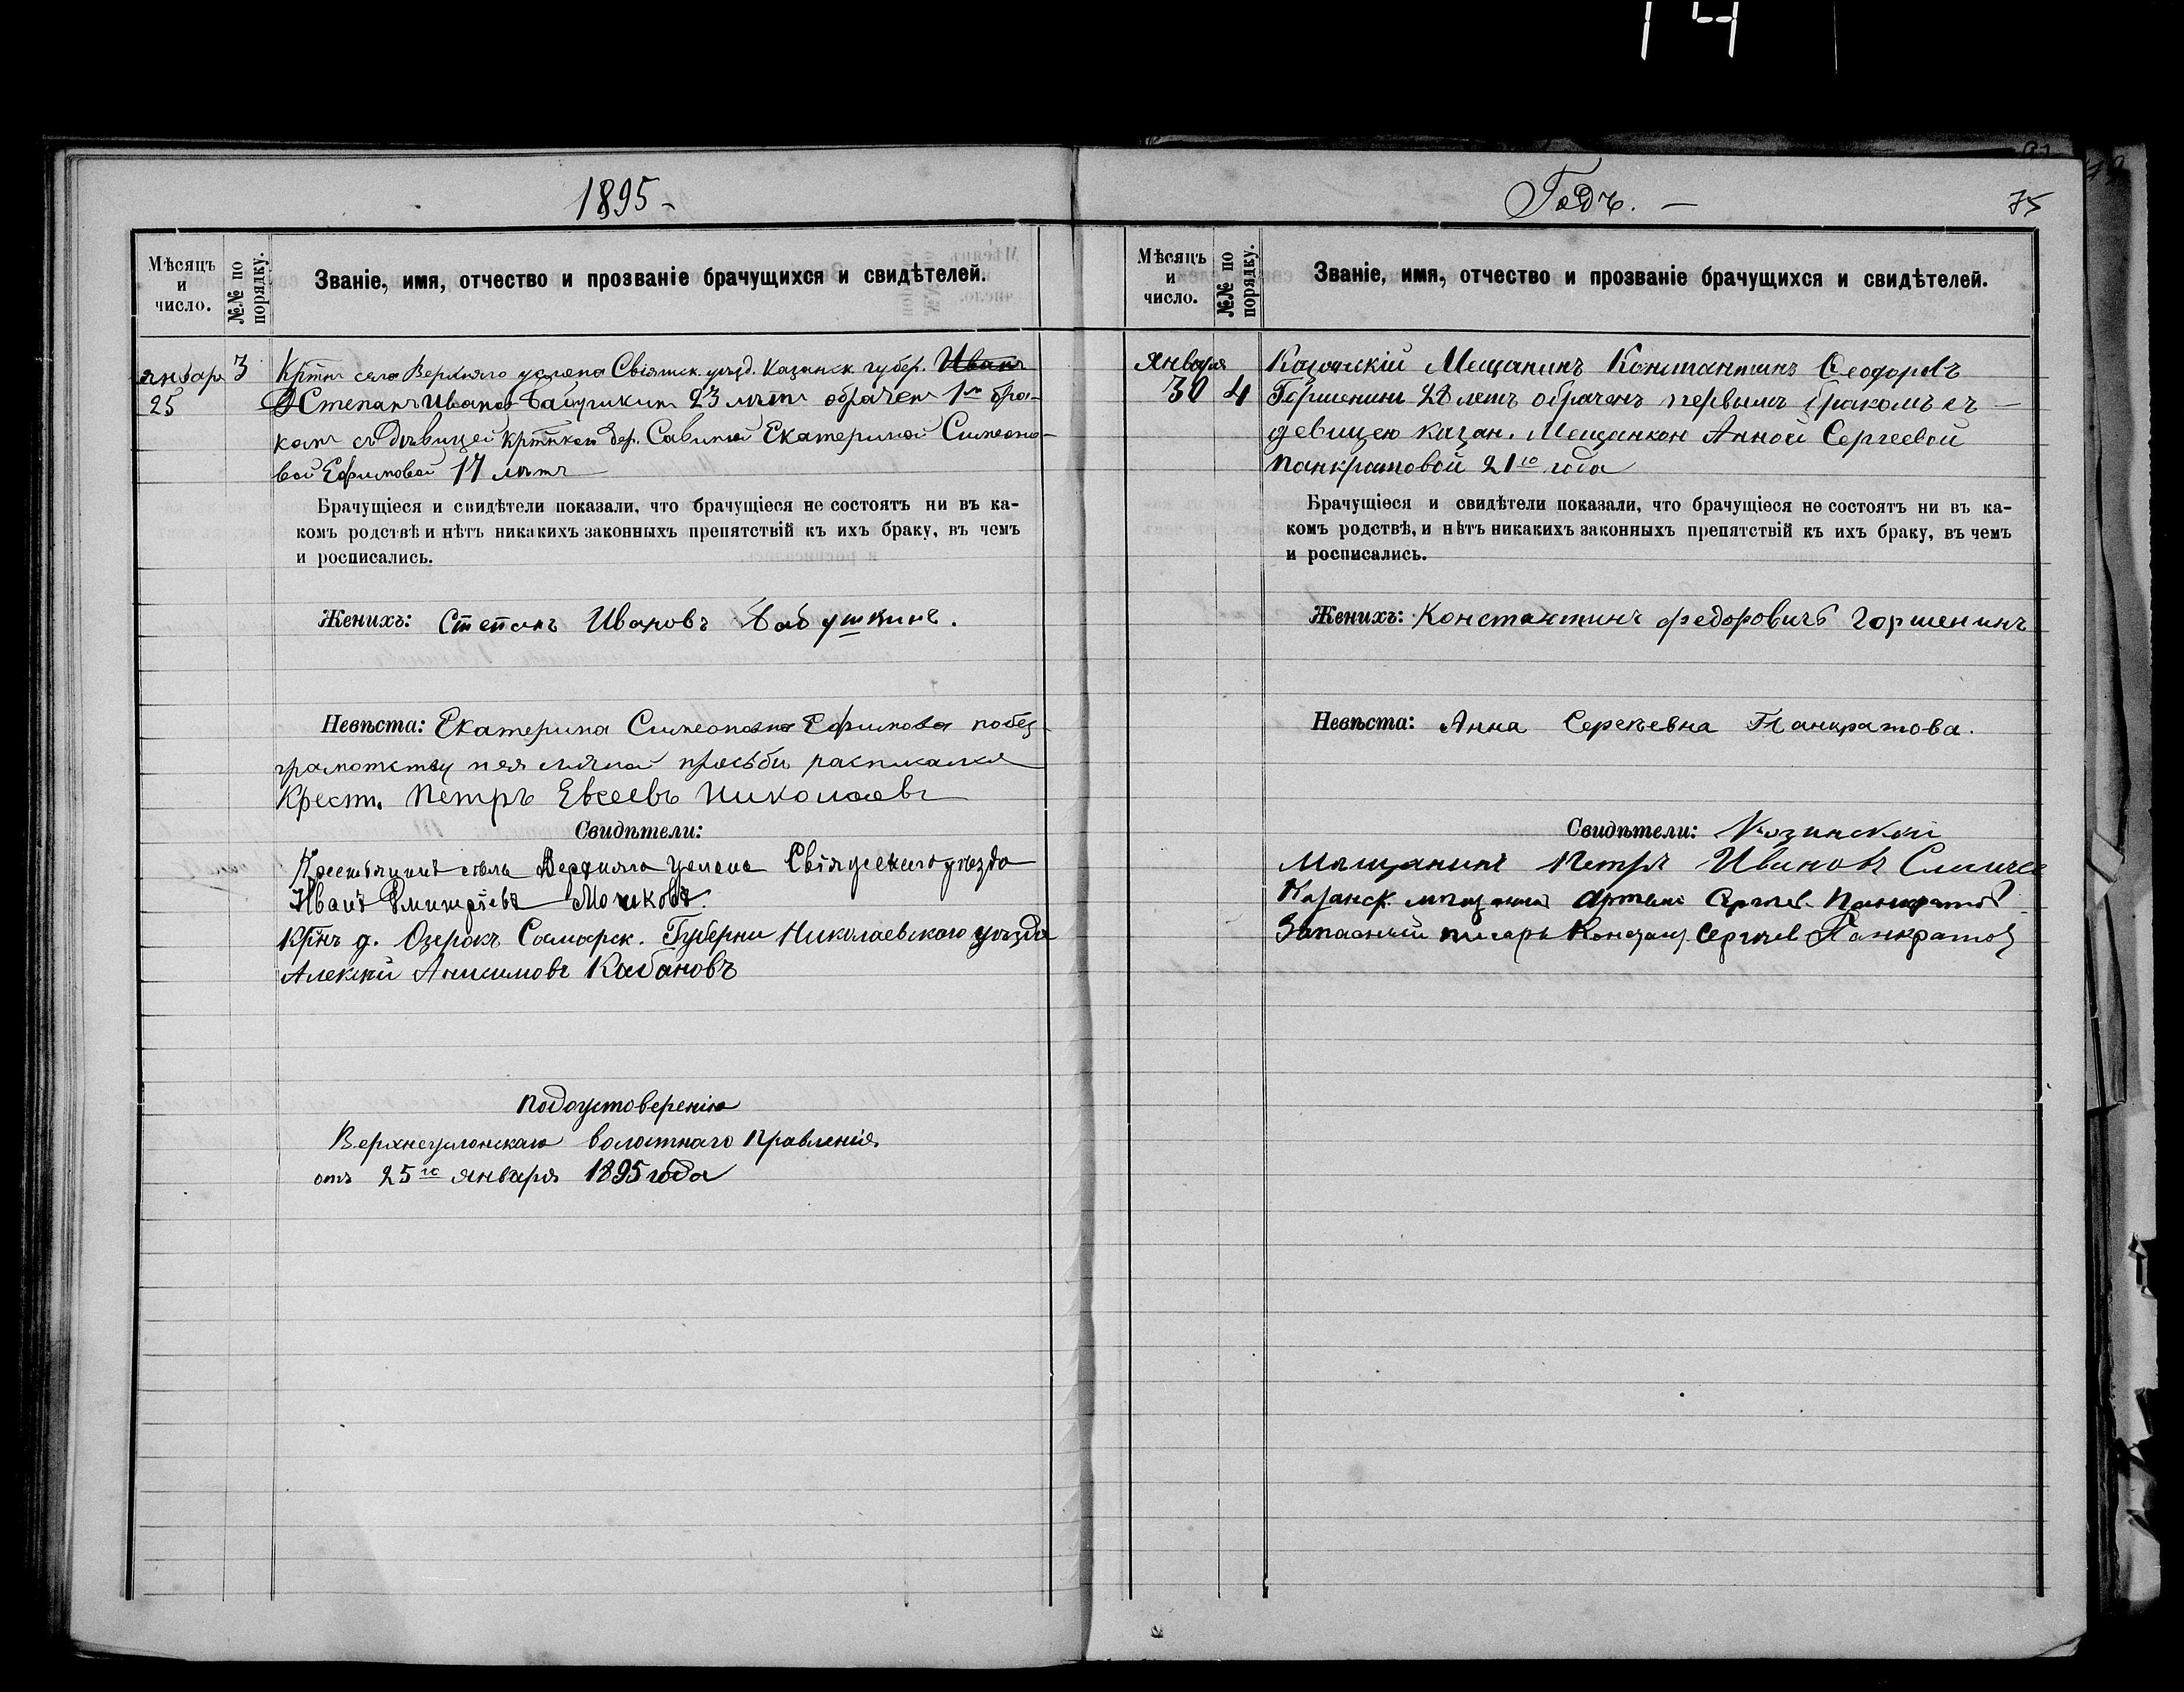 14
1895 -
Мѣсяцъ и число.
№№ по порядку.
Званіе, имя, отчество и прозваніе брачущихся и свидѣтелей.
январ 3 Крт̅нъ села Верхняго услона Свіяжск. уѣзд. Казанск. губер. Иванъ
25 Степанъ Иванов Бабушкинъ 23 лѣтъ обрачен 1м бра-
комъ съ дѣвицей крт̅нкой дер. Савиной Екатериной Симеоно-
вой Ефимовой 17 лѣтъ
Брачущіеся и свидѣтели показали, что брачущіеся не состоятъ ни въ ка-
комъ родствѣ и нѣтъ никакихъ законныхъ препятствій къ ихъ браку, въ чемъ
и росписались.
Женихъ: Степанъ Ивановъ Бабушкинъ.
Невѣста: Екатерина Симеоновна Ефимова побез-
грамотству и ея личной просьбы расписался
Крест. Петръ Евсеевъ Николаевъ
Свидѣтели:
Крестьянинъ села Верхняго Услона Свіяжскаго уѣзда
Иванъ Дмитріевъ Мочковъ.
Крт̅нъ д. Озерокъ Самарск. Губерни Николаевскаго уѣзда
Алексѣй Анисимовъ Кабановъ
подоустоверенію
Верхнеуслонскаго волостнаго Правленія
отъ 25го января 1895 года
Годъ. - 75
Мѣсяцъ и число.
№№ по порядку.
Званіе, имя, отчество и прозваніе брачущихся и свидѣтелей.
Января Казанскій Мещанинъ Константинъ Ѳеодоровъ
30 4 Горшенинъ 28 летъ обраченъ первымъ бракомъ съ -
девицею казан. Мещанкой Анной Сергеевой
панкратовой 21го года
Брачущіеся и свидѣтели показали, что брачущіеся не состоятъ ни въ ка-
комъ родствѣ, и нѣтъ никакихъ законныхъ препятствій къ ихъ браку, въ чемъ
и росписались.
Женихъ: Константинъ федоровичъ Горшенинъ
Невѣста: Анна Сергѣевна Панкратова.
Свидѣтели: Казанской
Мѣщанинъ Петръ Ивановъ
Казанск. мѣщанинъ Артемій Сергѣев. Панкратов
Запасный писарь Сергѣев Панкратов